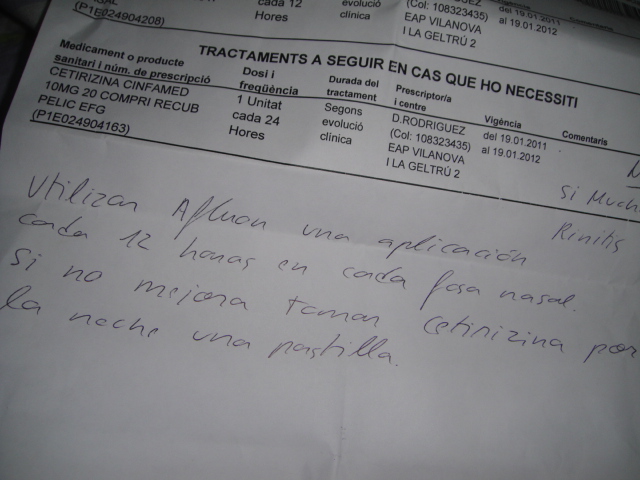 (P1E024904208)
cada 12
Hores
evolució
clínica
(Col: 108323435)
EAP VILANOVA
I LA GELTRÚ 2
del 19.01.2011
al 19.01.2012
Comentaris
TRACTAMENTS A SEGUIR EN CAS QUE HO NECESSITI
Medicament o producte
sanitari i núm. de prescripció
Dosi i
freqüència
Durada del
tractament
Prescriptor/a
i centre
Vigència
Comentaris
CETIRIZINA CINFAMED
10MG 20 COMPRI RECUB
PELIC EFG
(P1E024904163)
1 Unitat
cada 24
Hores
Segons
evolució
clínica
D.RODRIGUEZ
(Col: 108323435)
EAP VILANOVA
I LA GELTRÚ 2
del 19.01.2011
al 19.01.2012
Si Much
Rinitis
Utilizar Afluon una aplicación
cada 12 horas en cada fosa nasal.
Si no mejora tomar Cetirizina por
la noche una pastilla.